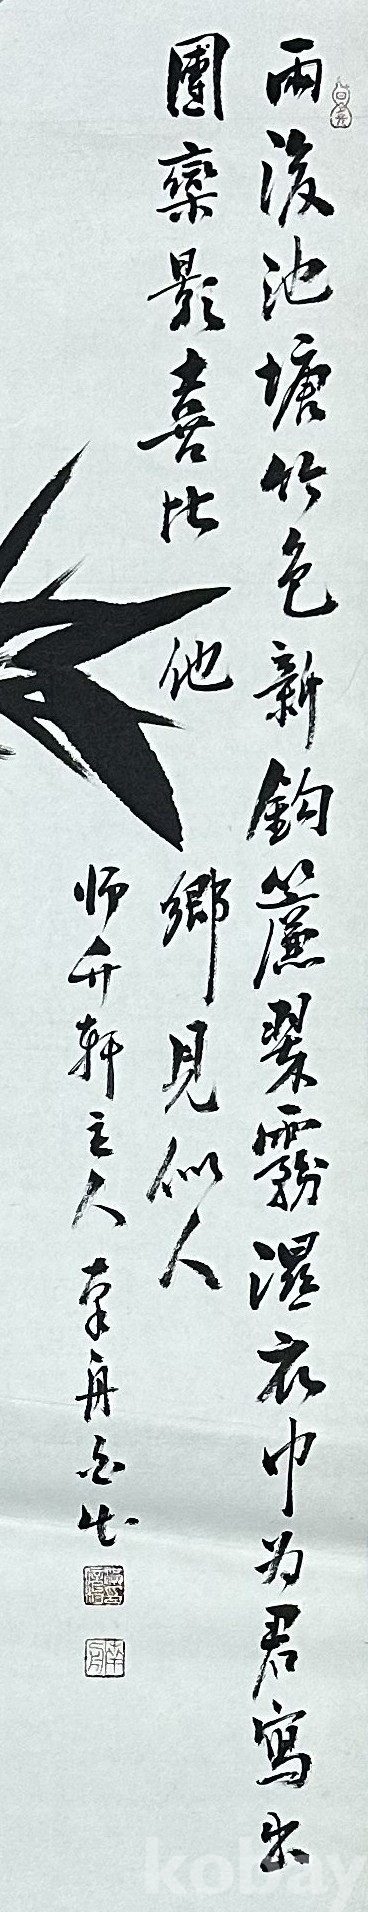 雨後池塘竹色新鉤簾翠霧濕衣巾为君寫出
團欒影喜比他鄉見似人
师竹軒主人南舟
南舟
kobay